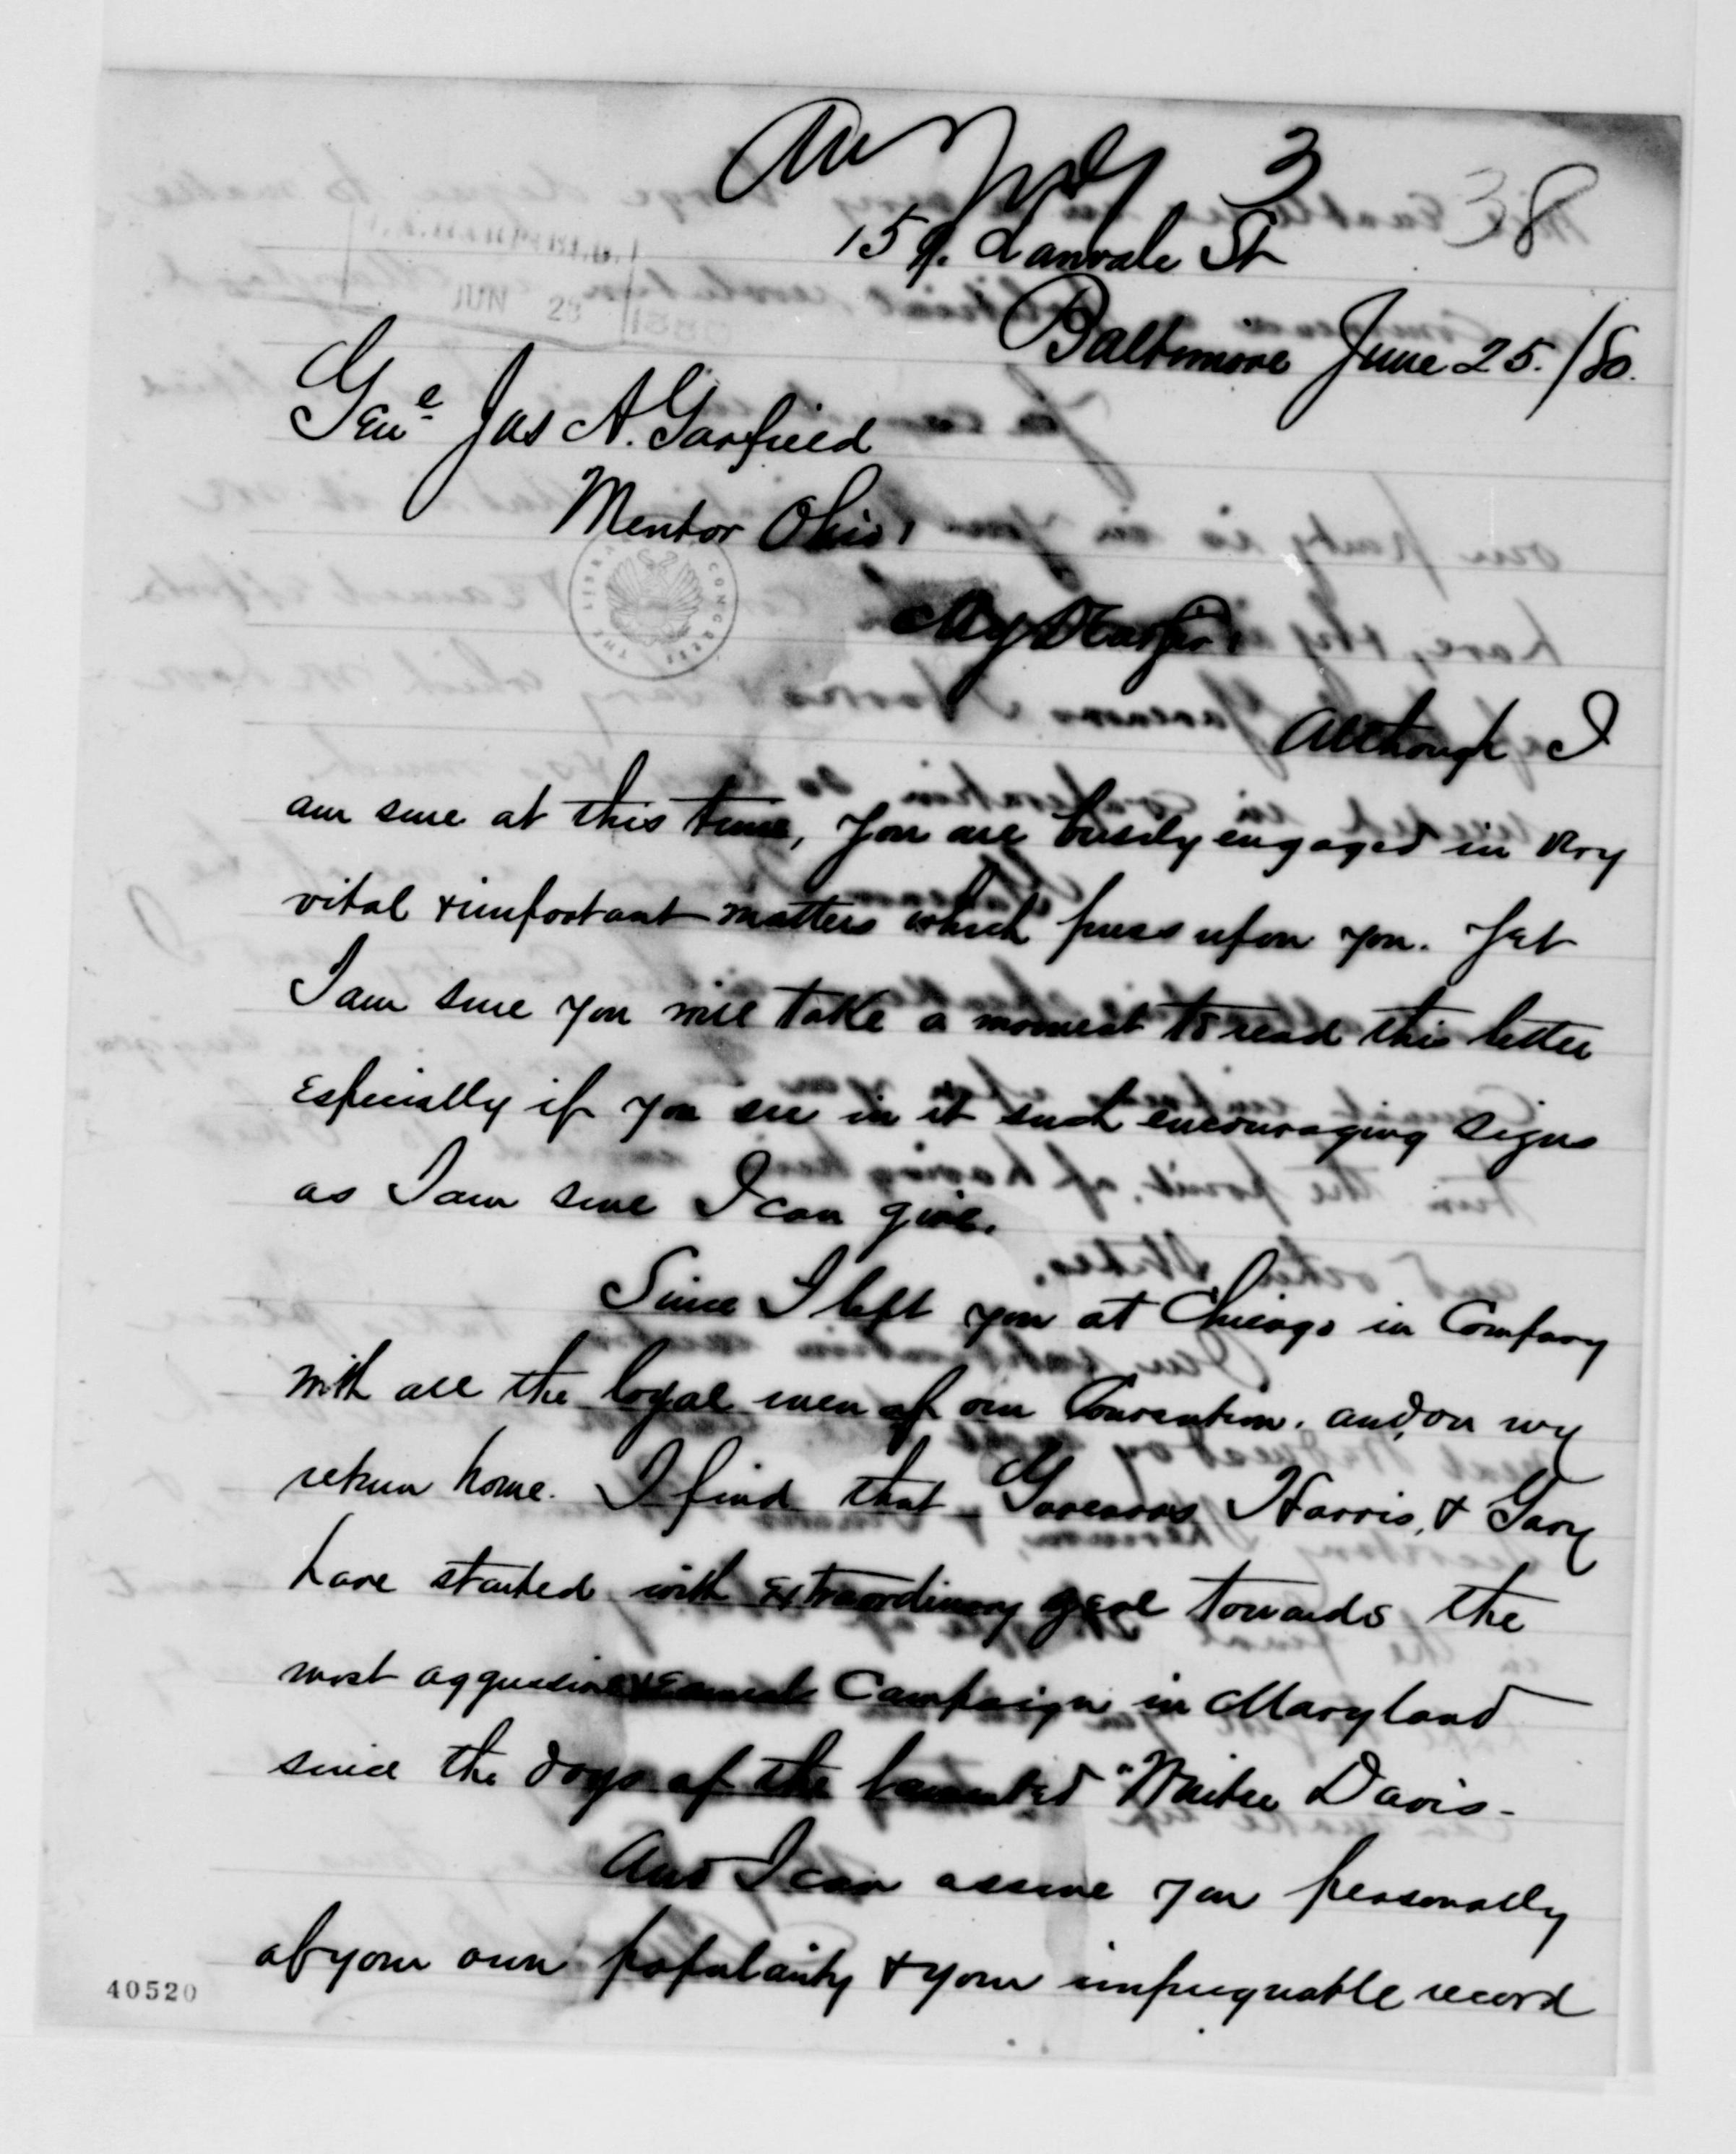 An July 3
38
159. Lanvale St
J.A. GARFIELD.
JUN 28 1880
Baltimore June 25. /80.
Genl Jas A. Garfield
Mentor Ohio,
THE LIBRARY OF CONGRESS
My Dear Sir,
Although I
am sure at this time, you are busily engaged in very
vital & important matters which press upon you. Yet
I am sure you will take a moment to read this letter
Especially if you see in it such encouraging signs
as I am sure I can give.
Since I left you at Chicago in Company
with all the loyal men of our Convention. and, on my
return home. I find that Governors Harris, & Gary
have started with Extraordinary zeal towards the
most aggressive & Earnest Campaign in Maryland
since the days of the lamented "Winter Davis-
And I can assure you personally
of your own popularity & your impregnable record
40520